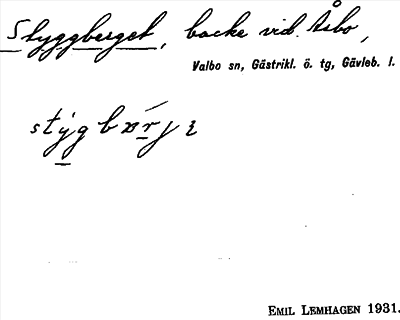 Styggberget, backe vid Åsbo,
Valbo sn, Gästrikl. ö. tg, Gävleb. l.
EMIL LEMHAGEN 1931.